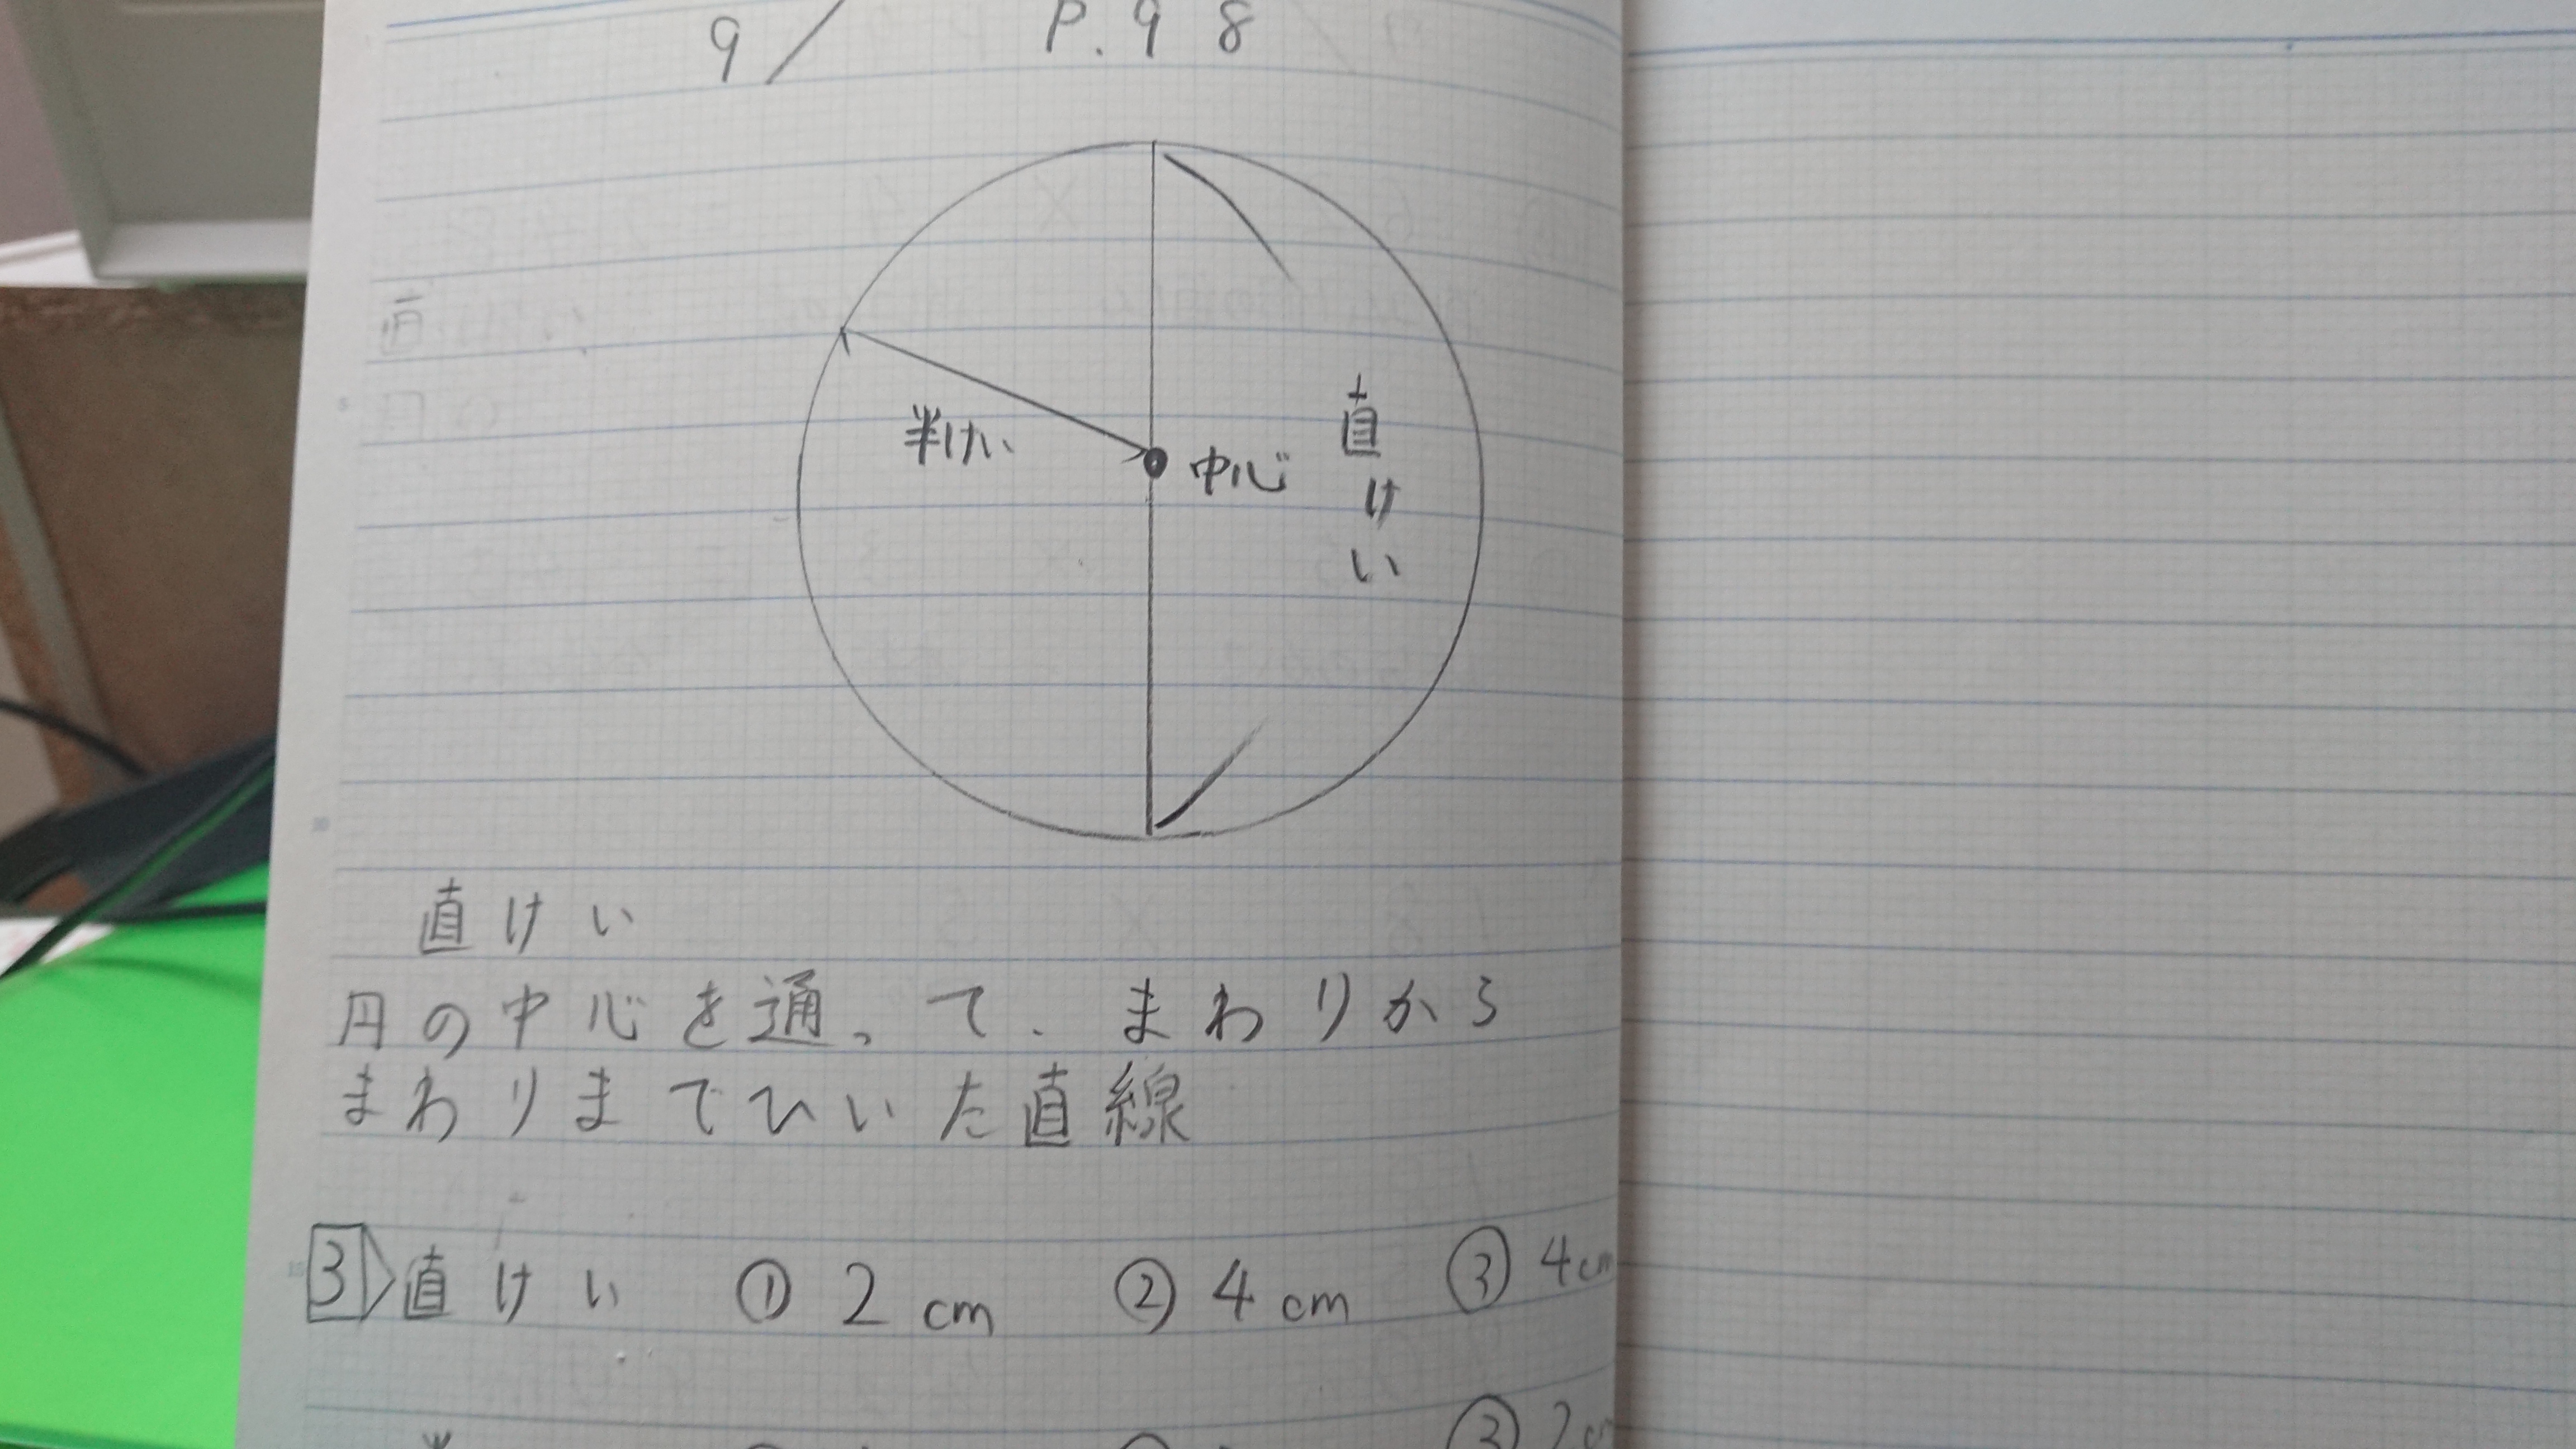 9/ P.98
半けい
中心
直けい
直けい
円の中心を通って、まわりから
まわりまでひいた直線
3 直けい ① 2cm ② 4cm ③ 4cm
③ 2cm